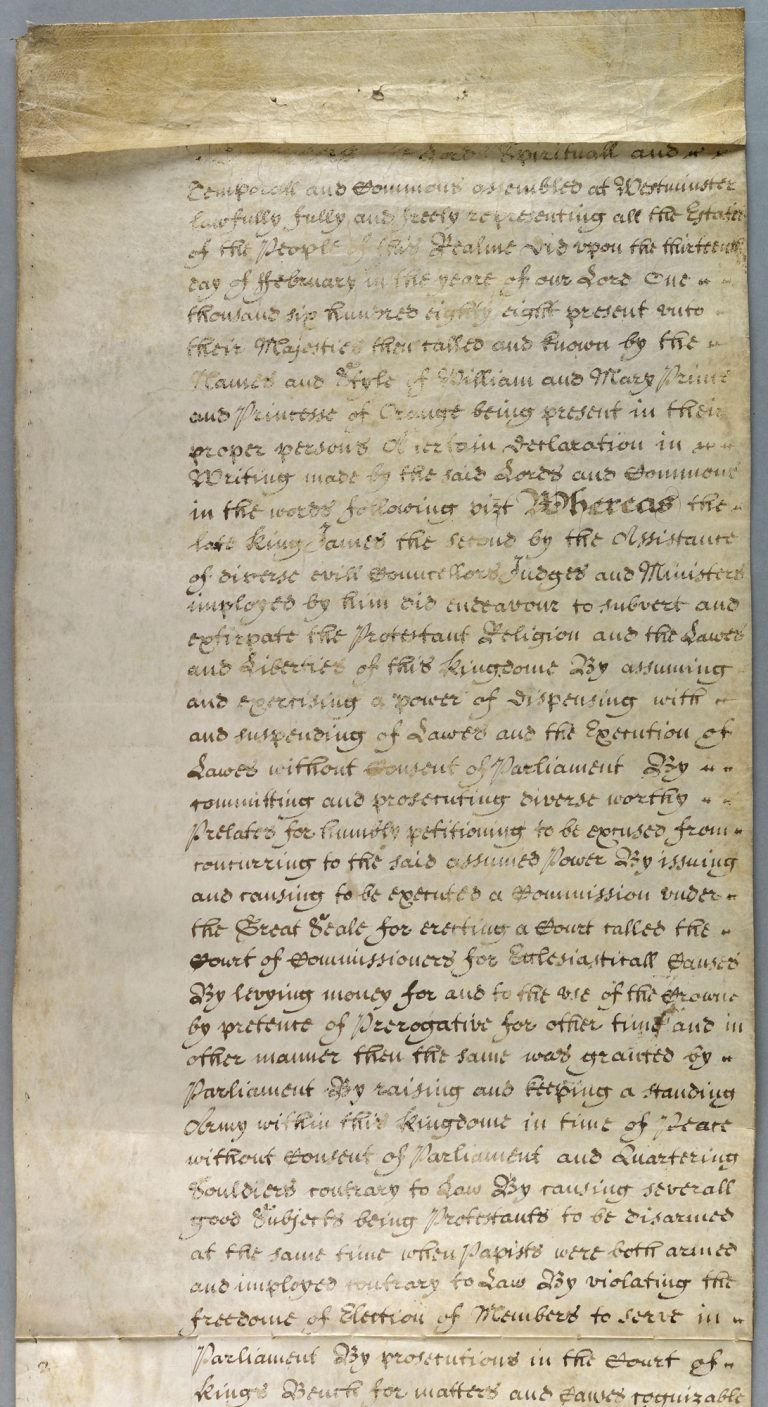 the Lords Spirituall and
Temporall and Commons assembled at Westminster
lawfully fully and freely representing all the Estates
of the People of this Realme did upon the thirteenth
day of ffebruary in the yeare of our Lord One
thousand six hundred eighty eight present vnto
their Majesties then called and known by the
Names and Style of William and Mary Prince
and Princesse of Orange being present in their
proper persons A certain Declaration in
Writing made by the said Lords and Commons
in the words following vizt Whereas the
late King James the second by the Assistance
of diverse evill Councellors Judges and Ministers
imployed by him did endeavour to subvert and
extirpate the Protestant Religion and the Lawes
and Liberties of this Kingdome By assuming
and exercising a power of dispensing with
and suspending of Lawes and the Execution of
Lawes without Consent of Parliament By
committing and prosecuting diverse worthy
Prelates for humbly petitioning to be excused from
concurring to the said assumed Power By issuing
and causing to be executed a Commission under
the Great Seale for erecting a Court called the
Court of Commissioners for Ecclesiasticall Causes
By levying money for and to the use of the Crowne
by pretence of Prerogative for other time and in
other manner then the same was granted by
Parliament By raising and keeping a standing
Army within this Kingdome in time of Peace
without Consent of Parliament and Quartering
Souldiers contrary to Law By causing severall
good Subjects being Protestants to be disarmed
at the same time when Papists were both armed
and imployed contrary to Law By violating the
freedome of Election of Members to serve in
Parliament By prosecutions in the Court of
Kings Bench for matters and Causes cognizable